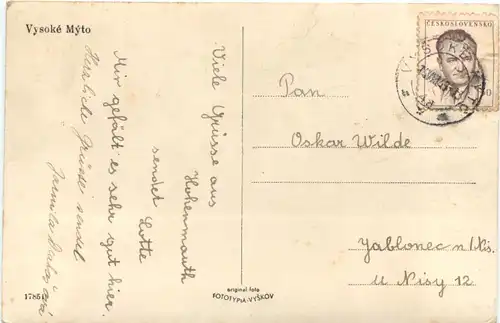 Vysoké Mýto
Viele Grüsse aus
Hohenmauth
sendet Lotte
Mir gefält es sehr gut hier.
Herzliche Grüsse sendet
Jarmila
ČESKOSLOVENSKO
Pan
Oskar Wilde
Jablonec n/Nis.
U Nisy 12
original foto
FOTOTYPIA-VYŠKOV